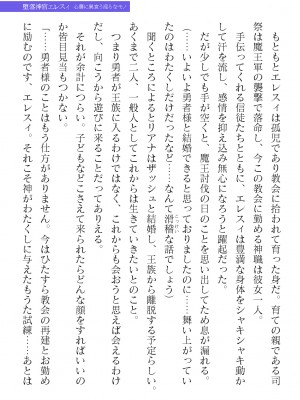 堕落神官エレスィ 心髄に巣食う淫らなモノ
もともとエレスィは孤児であり教会に拾われて育った身だ。育ての親である司
祭は魔王軍の襲撃で落命し、今この教会に勤める神職は彼女一人。
手伝ってくれる信徒たちとともに、エレスィは豊満な身体をシャキシャキ動か
して汗を流し、感情を抑え込み無心になろうと躍起だった。
だが少しでも手が空くと、魔王討伐の日のことを思い出してため息が漏れる。
（……いよいよ勇者様と結婚できると思っておりましたのに……舞い上がってい
たのはわたくしだけだったなど……なんて滑稽な話でしょう）
聞くところによるとリアナはザッシュと結婚し、王族から離脱する予定らしい。
あくまで二人、一般人としてこれからは生きていきたいとのこと。
つまり勇者が王族に入るわけではなく、これからも会おうと思えば会えるわけ
だし、向こうから遊びに来ることだってありえる。
それが余計につらい。子どもなどこさえて来られたらどんな顔をすればいいの
か皆目見当もつかない。
（……勇者様のことはもう仕方がありません。今はひたすら教会の再建とお勤め
に励むのです、エレスィ。それこそ神がわたくしに与えたもうた試練……あとは